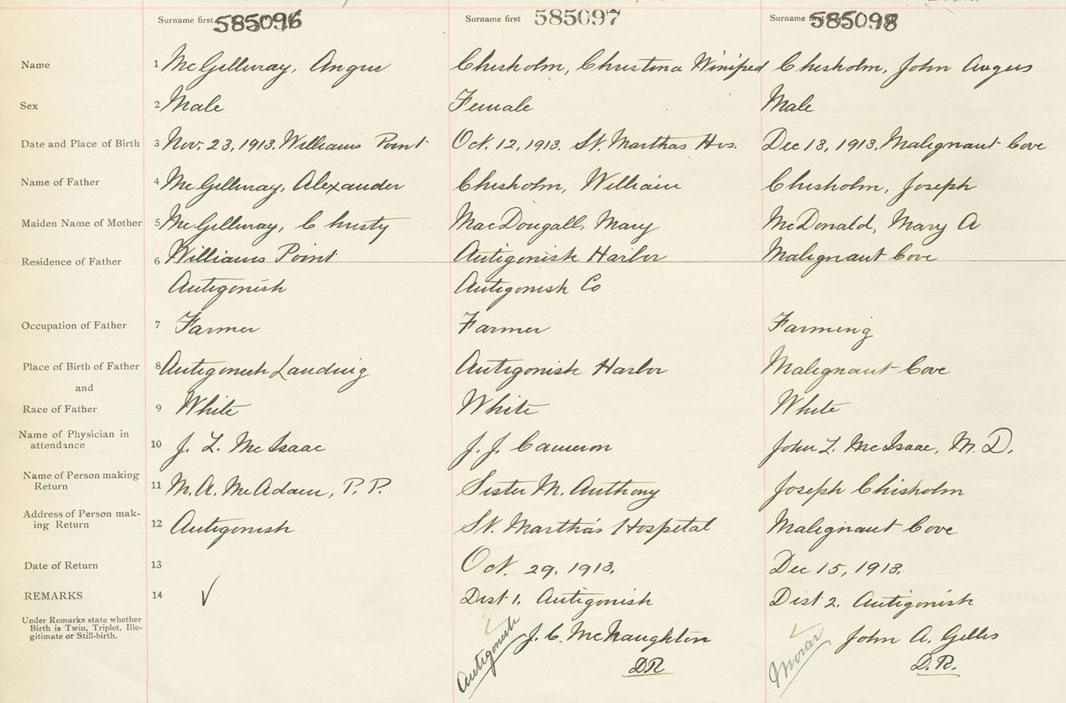 Surname first 585096 Surname first 585097 Surname first 585098
Name 1 McGillivray, Angus Chisholm, Christina Winifred Chisholm, John Angus
Sex 2 Male Female Male
Date and Place of Birth 3 Nov. 23, 1913. Williams Point Oct. 12, 1913. St. Marthas Hos. Dec 13, 1913. Malignant Cove
Name of Father 4 McGillivray, Alexander Chisholm, William Chisholm, Joseph
Maiden Name of Mother 5 McGillivray, Christy MacDougall, Mary McDonald, Mary A
Residence of Father 6 Williams Point Antigonish Harbor Malignant Cove
Antigonish Antigonish Co
Occupation of Father 7 Farmer Farmer Farming
Place of Birth of Father 8 Antigonish Landing Antigonish Harbor Malignant Cove
and
Race of Father 9 White White White
Name of Physician in
attendance 10 J. L. McIsaac J. J. Cameron John L. McIsaac, M. D.
Name of Person making
Return 11 M. A. McAdam, P. P. Sister M. Anthony Joseph Chisholm
Address of Person mak-
ing Return 12 Antigonish St. Martha's Hospital Malignant Cove
Date of Return 13 Oct. 29, 1913. Dec 15, 1913.
REMARKS 14 ✓ Dist 1. Antigonish Dist 2. Antigonish
Under Remarks state whether
Birth is Twin, Triplet, Ille-
gitimate or Still-birth.
Antigonish J. C. McNaughton Morar John A. Gillis
DR D.R.